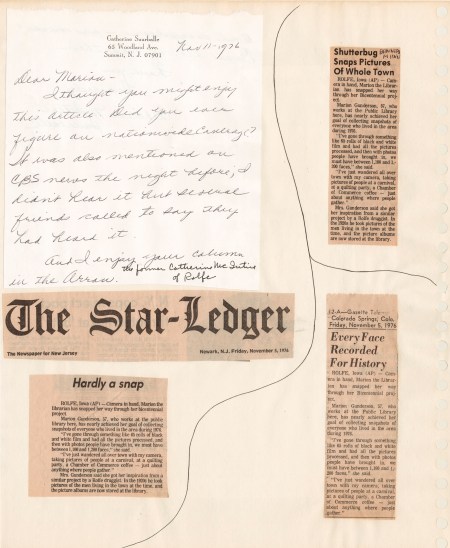 Catherine Saarbulle
65 Woodland Ave.
Summit, N. J. 07901
Nov 11-1976
Dear Marian -
I thought you might enjoy
this article. Did you ever
figure on nationwide coverage?
It was also mentioned on
CBS news the night before, I
didn't hear it but several
friends called to say they
had heard it.
And I enjoy your column
in the Arrow.
the former Catherine Mc Entire
of Rolfe
The Star-Ledger
The Newspaper for New Jersey
Newark, N.J. Friday, November 5, 1976
Hardly a snap
ROLFE, Iowa (AP)—Camera in hand, Marion the
librarian has snapped her way through her Bicentennial
project.
Marion Gunderson, 57, who works at the public
library here, has nearly achieved her goal of collecting
snapshots of everyone who lived in the area during 1976.
"I've gone through something like 65 rolls of black
and white film and had all the pictures processed,
and then with photos people have brought in, we must have
between 1,100 and 1,200 faces," she said.
"I've just wandered all over town with my camera,
taking pictures of people at a carnival, at a quilting
party, a Chamber of Commerce coffee — just about
anything where people gather."
Mrs. Gunderson said she got her inspiration from a
similar project by a Rolfe druggist. In the 1920s he took
pictures of the men living in the town at the time, and
the picture albums are now stored at the library.
Shutterbug
Snaps Pictures
Of Whole Town
ROLFE, Iowa (AP) — Cam-
era in hand, Marian the Libra-
rian has snapped her way
through her Bicentennial proj-
ect.
Marian Gunderson, 57, who
works at the Public Library
here, has nearly achieved her
goal of collecting snapshots of
everyone who lived in the area
during 1976.
"I've gone through something
like 65 rolls of black and white
film and had all the pictures
processed, and then with
photos people have brought in, we
must have between 1,100 and 1,-
200 faces," she said.
"I've just wandered all over
town with my camera, taking
pictures of people at a carnival,
at a quilting party, a Chamber
of Commerce coffee — just
about anything where people
gather."
Mrs. Gunderson said she got
her inspiration from a similar
project by a Rolfe druggist. In
the 1920s he took pictures of the
men living in the town at the
time, and the picture albums
are now stored at the library.
12-A—Gazette
Colorado Springs, Colo.
Friday, November 5, 1976
Every Face
Recorded
For History
ROLFE, Iowa (AP) — Camera
in hand, Marian the Librar-
ian has snapped her way
through her Bicentennial proj-
ect.
Marian Gunderson, 57, who
works at the Public Library
here, has nearly achieved her
goal of collecting snapshots of
everyone who lived in the area
during 1976.
"I've gone through something
like 65 rolls of black and white
film and had all the pictures
processed, and then with photos
people have brought in, we
must have between 1,100 and 1,-
200 faces," she said.
"I've just wandered all over
town with my camera, taking
pictures of people at a carnival,
at a quilting party, a Chamber
of Commerce coffee — just
about anything where people
gather."